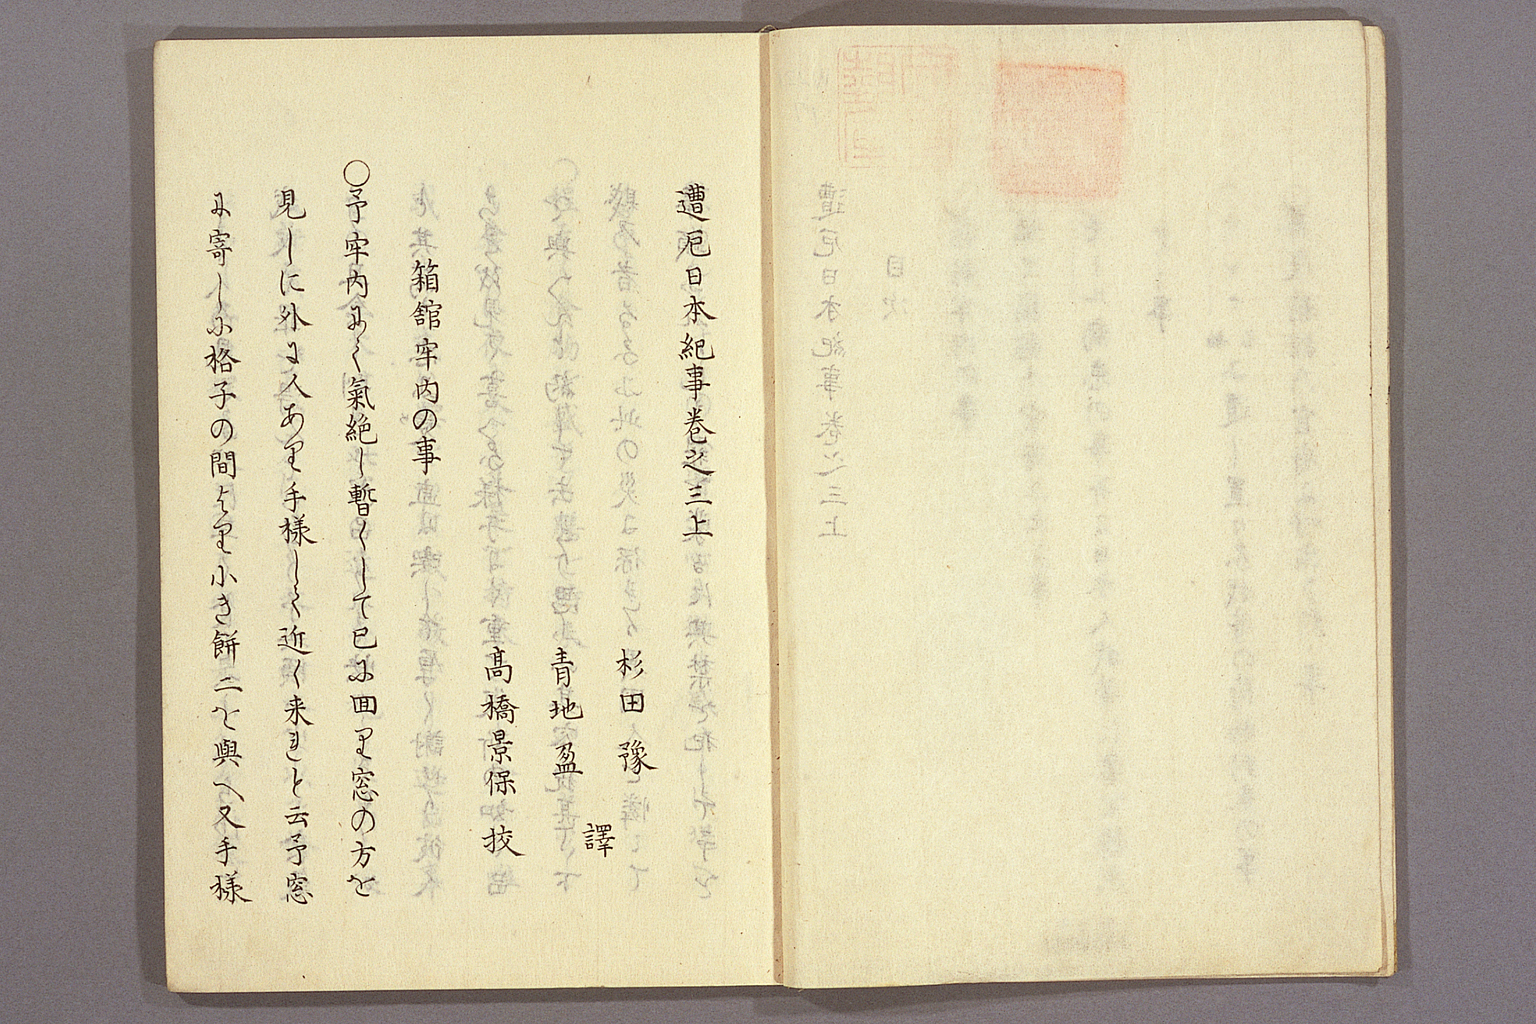 遭厄日本紀事卷之三上
杉田豫
青地盈
譯
髙橋景保挍
箱舘牢内の事
〇予牢内にて氣絶し暫くして已に囬り窓の方を
見しに外に人あり手様して近く来れと云予窓
に寄しに格子の間より小き餅二を與へ又手様